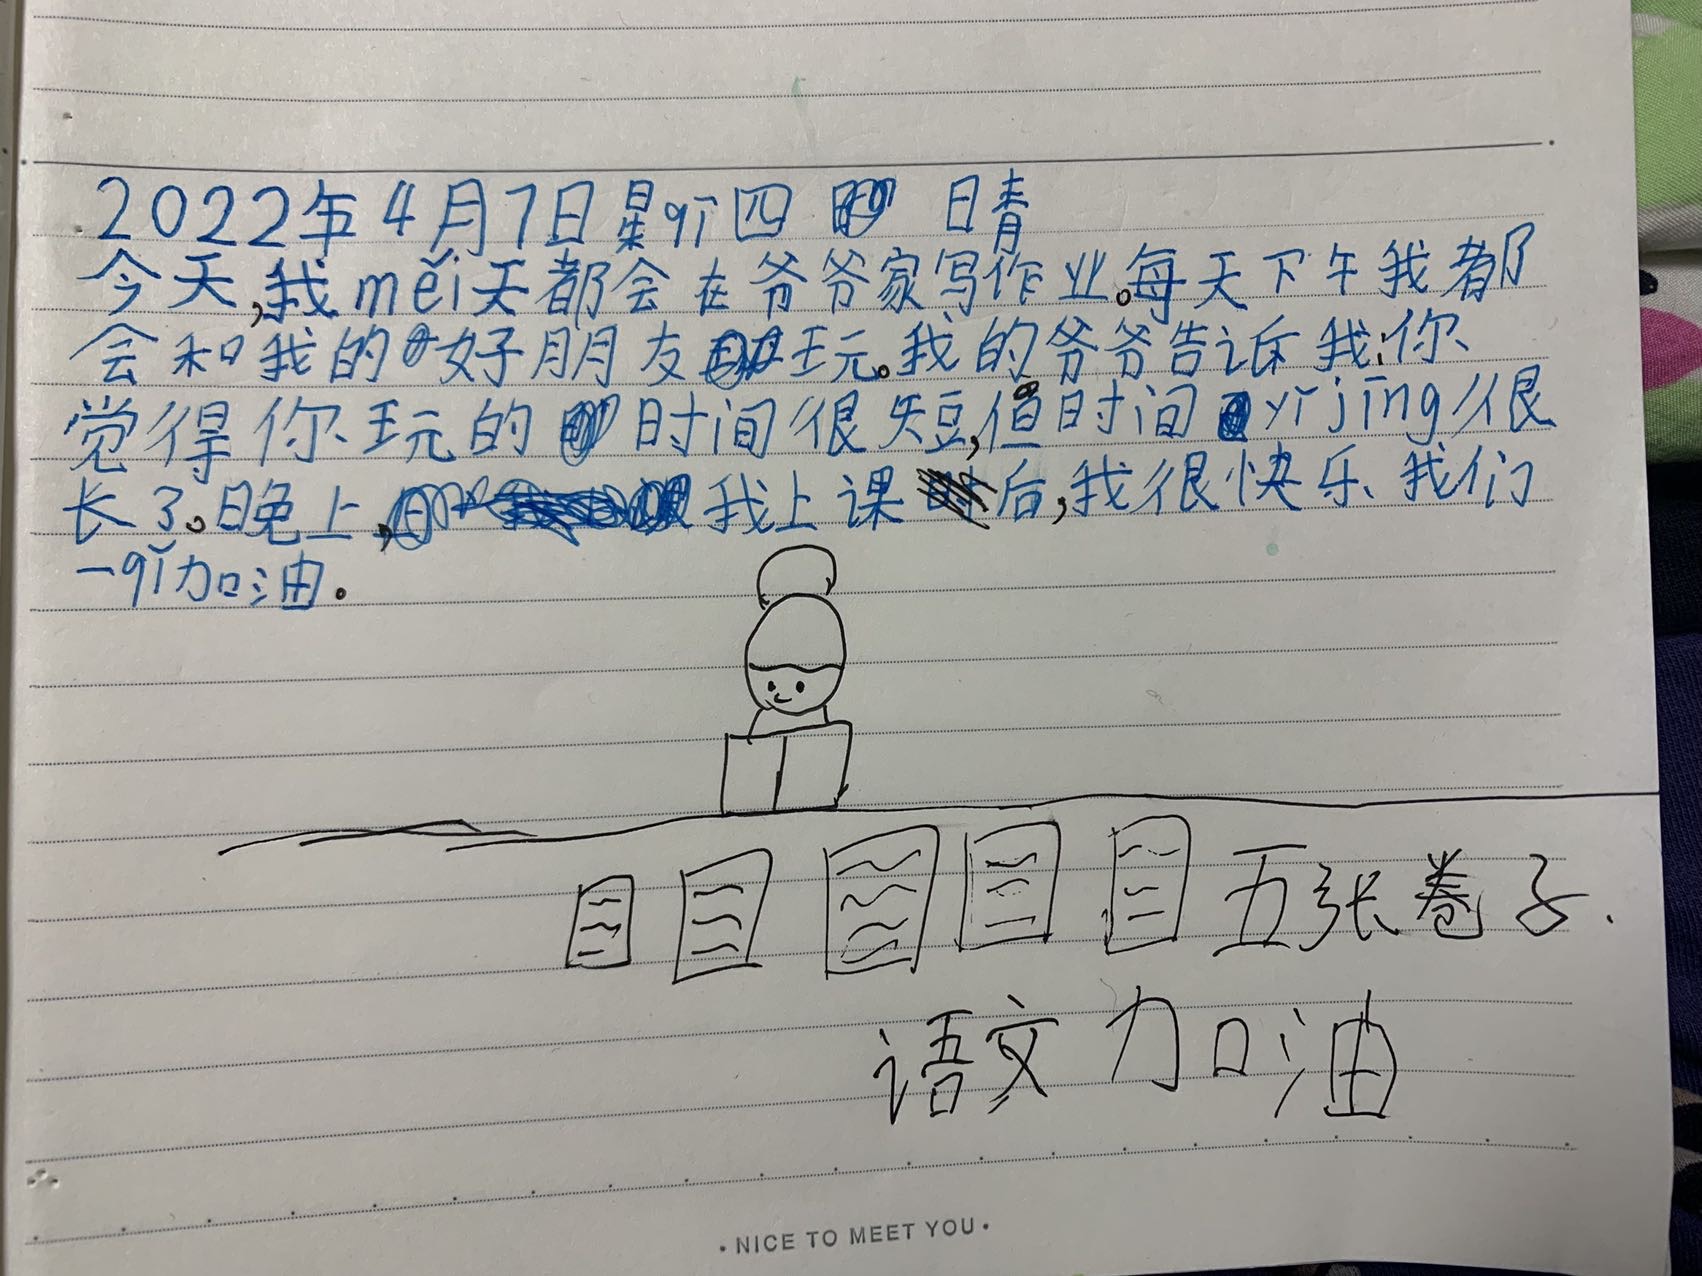 2022年4月7日星qī四 日晴
今天,我měi天都会在爷爷家写作业。每天下午我都
会和我的好朋友玩。我的爷爷告诉我:你
觉得你玩的时间很短,但时间yǐjīng很
长了。晚上,我上课后,我很快乐、我们
一qǐ加油.
五张卷子.
语文加油
·NICE TO MEET YOU·